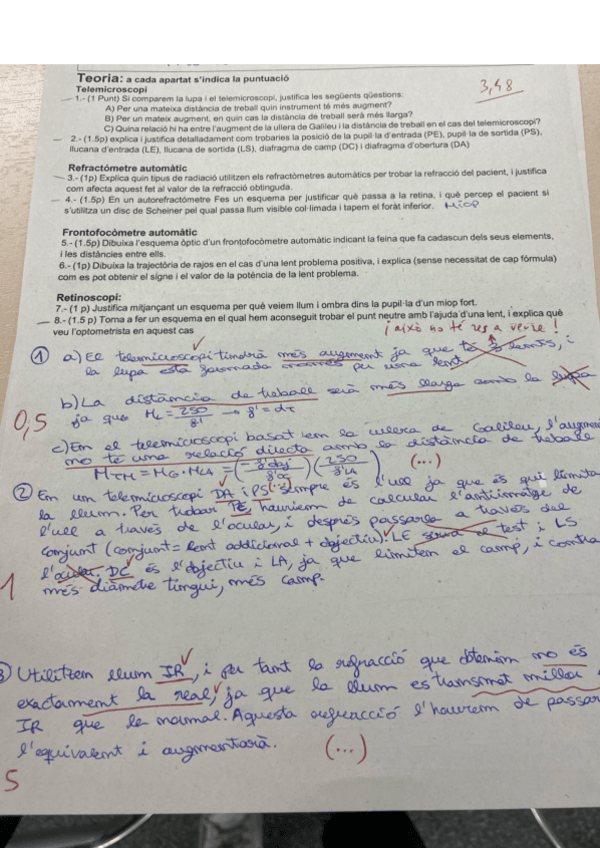 Teoria: a cada apartat s'indica la puntuació
3,48
Telemicroscopi
1.- (1 Punt) Si comparem la lupa i el telemicroscopi, justifica les següents qüestions:
A) Per una mateixa distància de treball quin instrument té més augment?
B) Per un mateix augment, en quin cas la distància de treball serà més llarga?
C) Quina relació hi ha entre l'augment de la ullera de Galileu i la distància de treball en el cas del telemicroscopi?
2.- (1.5p) explica i justifica detalladament com trobaries la posició de la pupil·la d'entrada (PE), pupil·la de sortida (PS),
llucana d'entrada (LE), llucana de sortida (LS), diafragma de camp (DC) i diafragma d'obertura (DA)
Refractòmetre automàtic
3.- (1p) Explica quin tipus de radiació utilitzen els refractòmetres automàtics per trobar la refracció del pacient, i justifica
com afecta aquest fet al valor de la refracció obtinguda.
4.- (1.5p) En un autorefractòmetre Fes un esquema per justificar què passa a la retina, i què percep el pacient si
s'utilitza un disc de Scheiner pel qual passa llum visible col·limada i tapem el forat inferior. Miop
Frontofocòmetre automàtic
5.- (1.5p) Dibuixa l'esquema òptic d'un frontofocòmetre automàtic indicant la feina que fa cadascun dels seus elements,
i les distàncies entre ells.
6.- (1p) Dibuixa la trajectòria de rajos en el cas d'una lent problema positiva, i explica (sense necessitat de cap fórmula)
com es pot obtenir el signe i el valor de la potència de la lent problema.
Retinoscopi:
7.- (1 p) Justifica mitjançant un esquema per què veiem llum i ombra dins la pupil·la d'un miop fort.
8.- (1.5 p) Torna a fer un esquema en el qual hem aconseguit trobar el punt neutre amb l'ajuda d'una lent, i explica què
veu l'optometrista en aquest cas
¡això no té res a veure!
1 a) El telemicroscopi tindrà més augment ja que té 3 lents, i
la lupa està formada només per una lent.
b) La distància de treball serà més llarga amb la lupa
ja que ML = 250/f' → f' = dt
0,5
c) En el telemicroscopi basat en la ullera de Galileu, l'augment
no té una relació directa amb la distància de treball
MTM = MG · MLA = (-f'obj/f'oc)(250/f'LA) (...)
2 En un telemicroscopi DA i PS (...) sempre és l'ull ja que és qui limita
la llum. Per trobar PE, hauríem de calcular l'antiimatge de
l'ull a través de l'ocular, i després passarla a través del
conjunt (conjunt = lent addicional + objectiu). LE serà el test i LS
l'ocular. DC és l'objectiu i LA, ja que limiten el camp, i contra
més diàmetre tingui, més camp.
1
3) Utilitzem llum IR, i per tant la refracció que obtenim no és
exactament la real, ja que la llum es transmet millor
IR que la normal. Aquesta refracció l'haurem de passar
l'equivalent i augmentarà. (...)
5